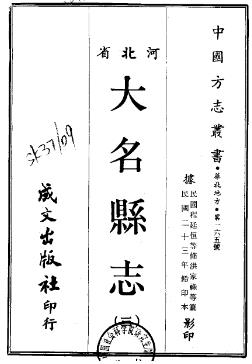 中國方志叢書·華北地方·第一六五號
據民國程廷恒等修洪家祿等纂
民國二十三年鉛印本影印
河北省
大名縣志
(三)
成文出版社印行